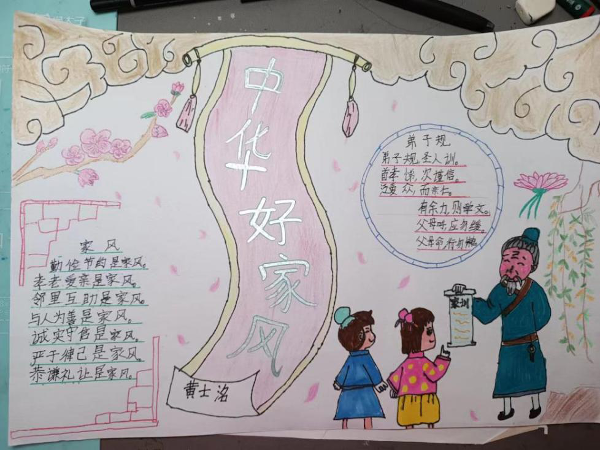 中华好家风
弟子规
弟子规,圣人训。
首孝悌,次谨信。
泛爱众,而亲仁。
有余力,则学文。
父母呼,应勿缓。
父母命,行勿懒。
家训
家风
勤俭节约是家风。
孝老爱亲是家风。
邻里互助是家风。
与人为善是家风。
诚实守信是家风。
严于律己是家风。
恭谦礼让是家风。
黄士洺